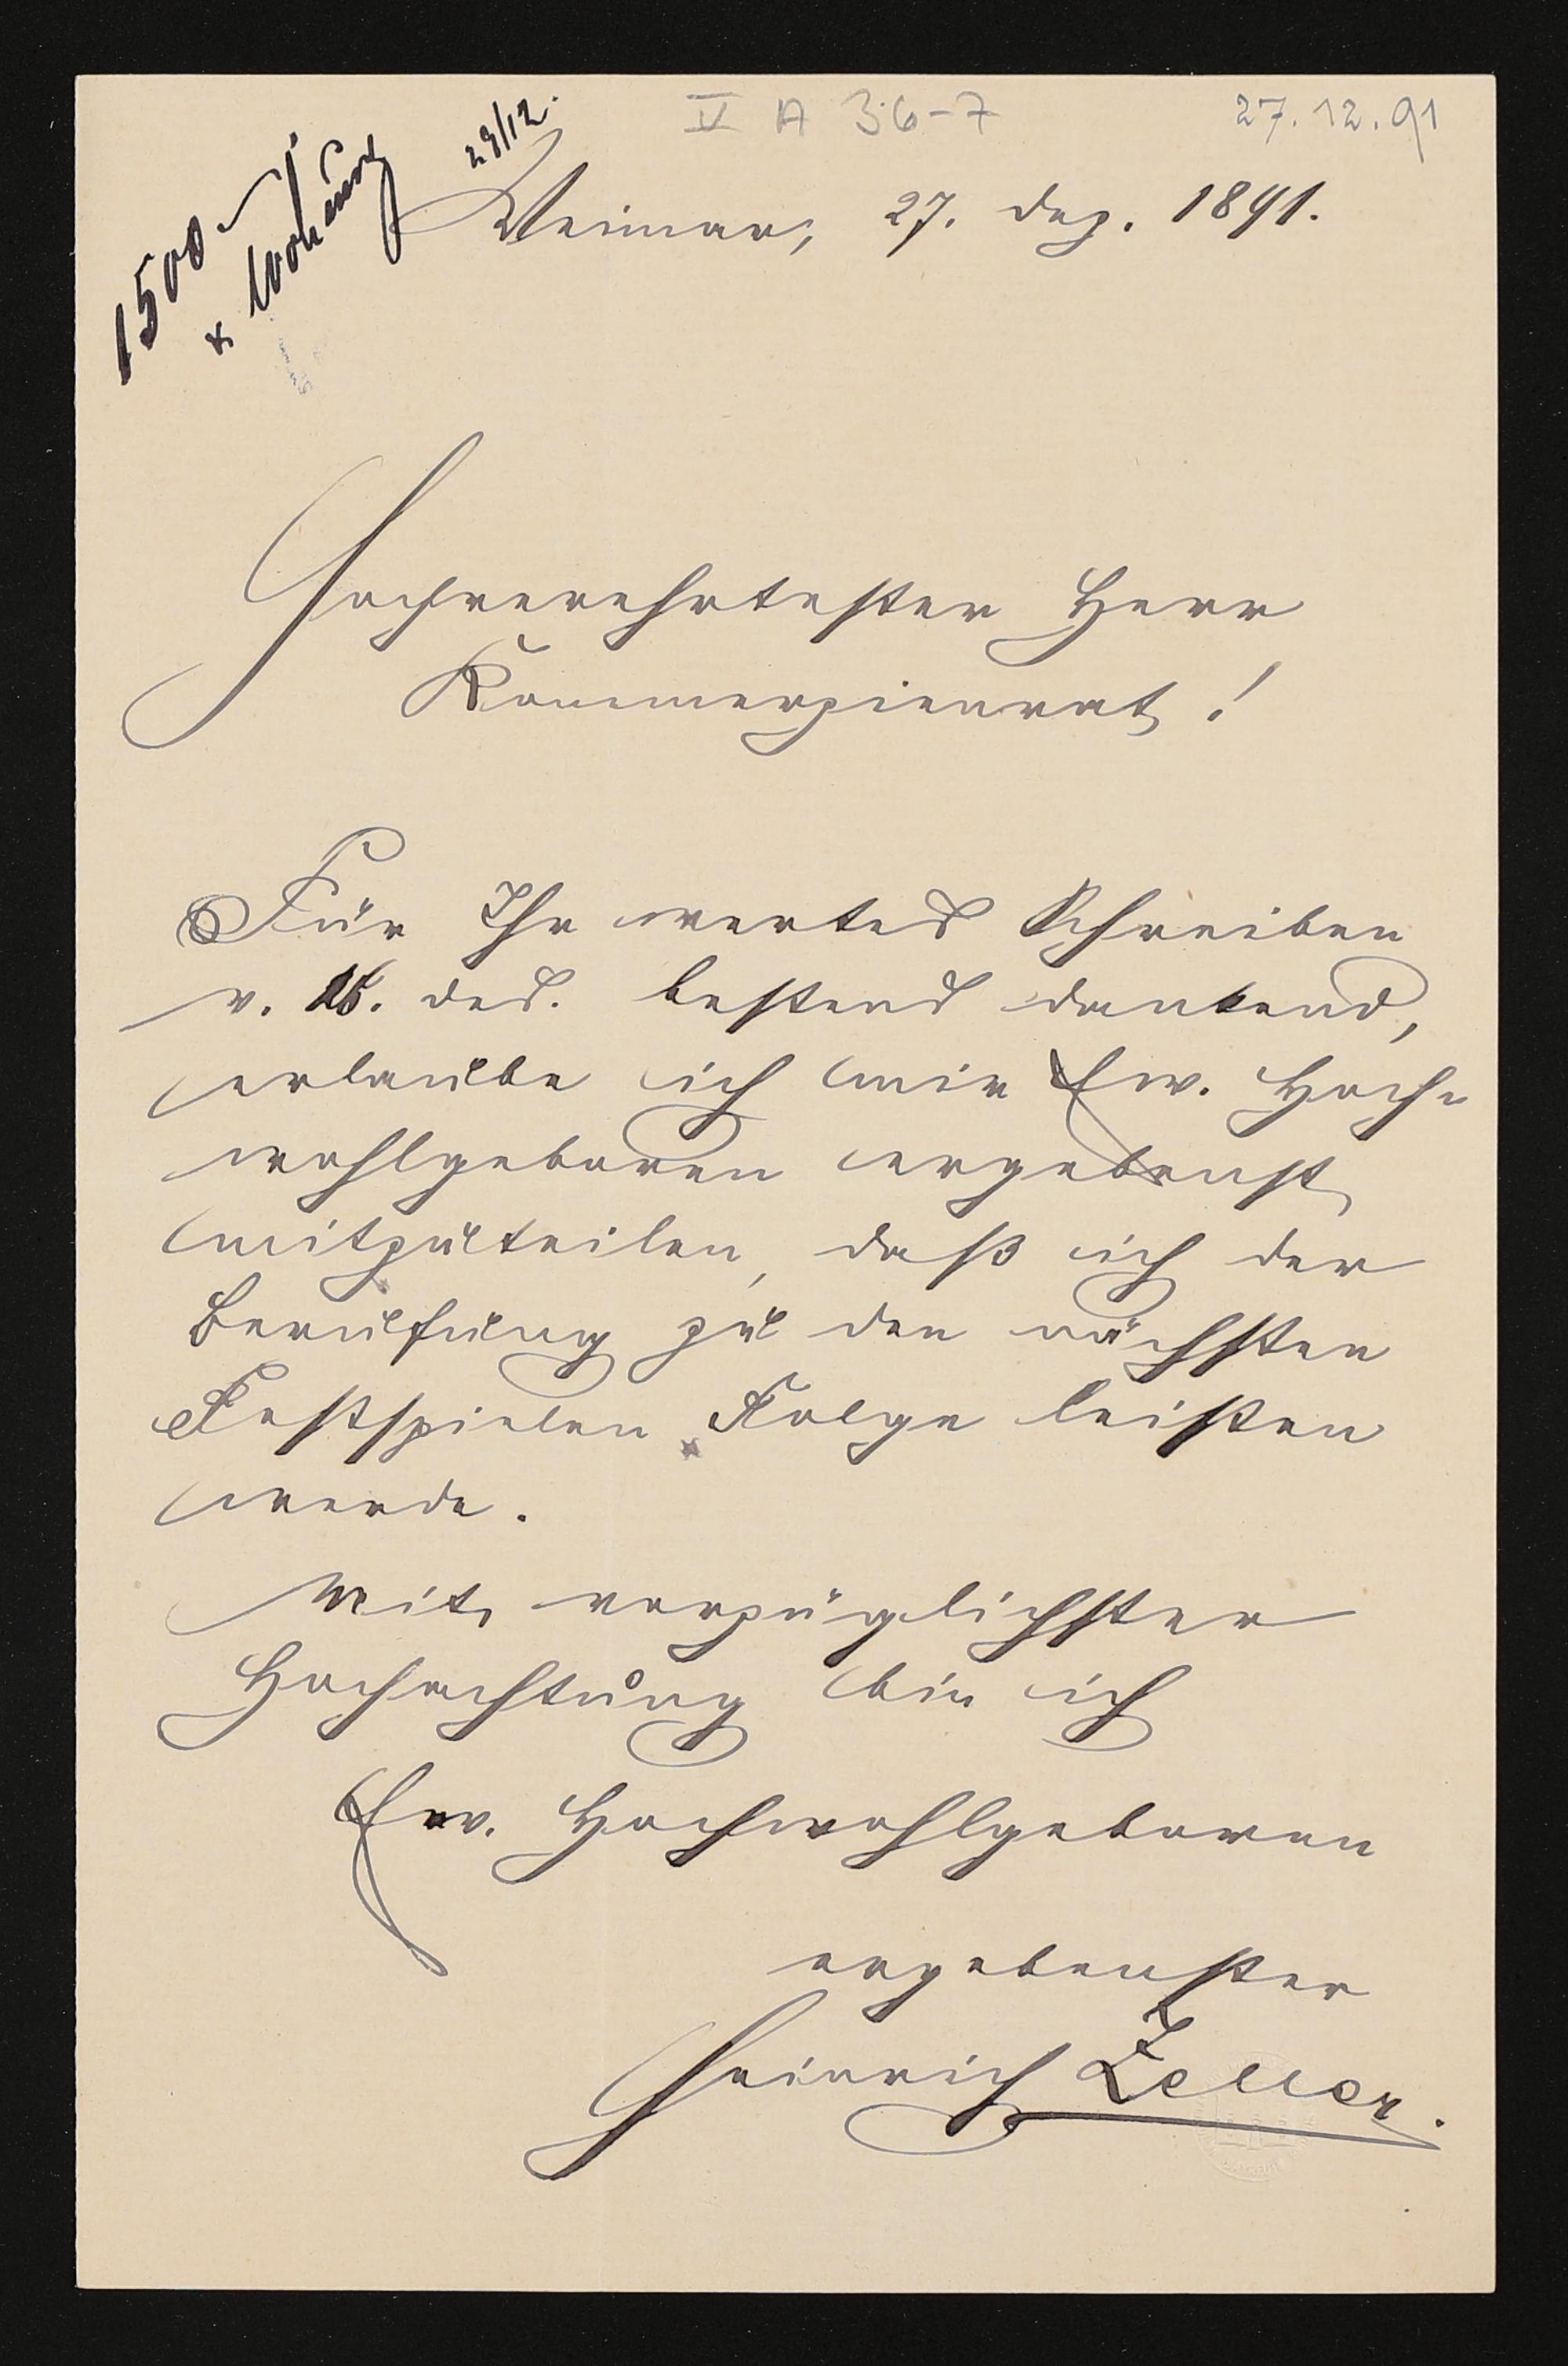 V A 36-7
27.12.91
29/12.
1500
+ Wohnung
Weimar, 27. Dez. 1891.
Hochverehrtester Herr
Kommerzienrat!
Für Ihr wertes Schreiben
v. 26. des. bestens dankend,
erlaube ich mir Ew. Hoch-
wohlgeboren ergebenst
mitzuteilen, daß ich der
Berufung zu den nächsten
Festspielen Folge leisten
werde.
Mit vorzüglichster
Hochachtung bin ich
Ew. Hochwohlgeboren
ergebenster
Heinrich Zeller.